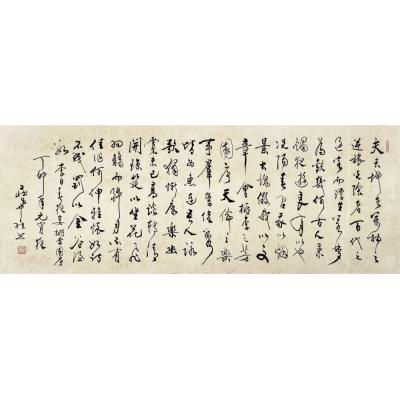 夫天地者萬物之
逆旅光陰者百代之
過客而浮生若夢
為歡幾何古人秉
燭夜遊良有以也
況陽春召我以烟
景大塊假我以文
章會桃李之芳
園序天倫之樂
事羣季俊秀
皆為惠連吾人詠
歌獨慚康樂幽
賞未已高談轉清
開瓊筵以坐花飛
羽觴而醉月不有
佳作何伸雅懷如詩
不成罰以金谷酒
數 李白春夜宴桃李園序
丁卯年元宵